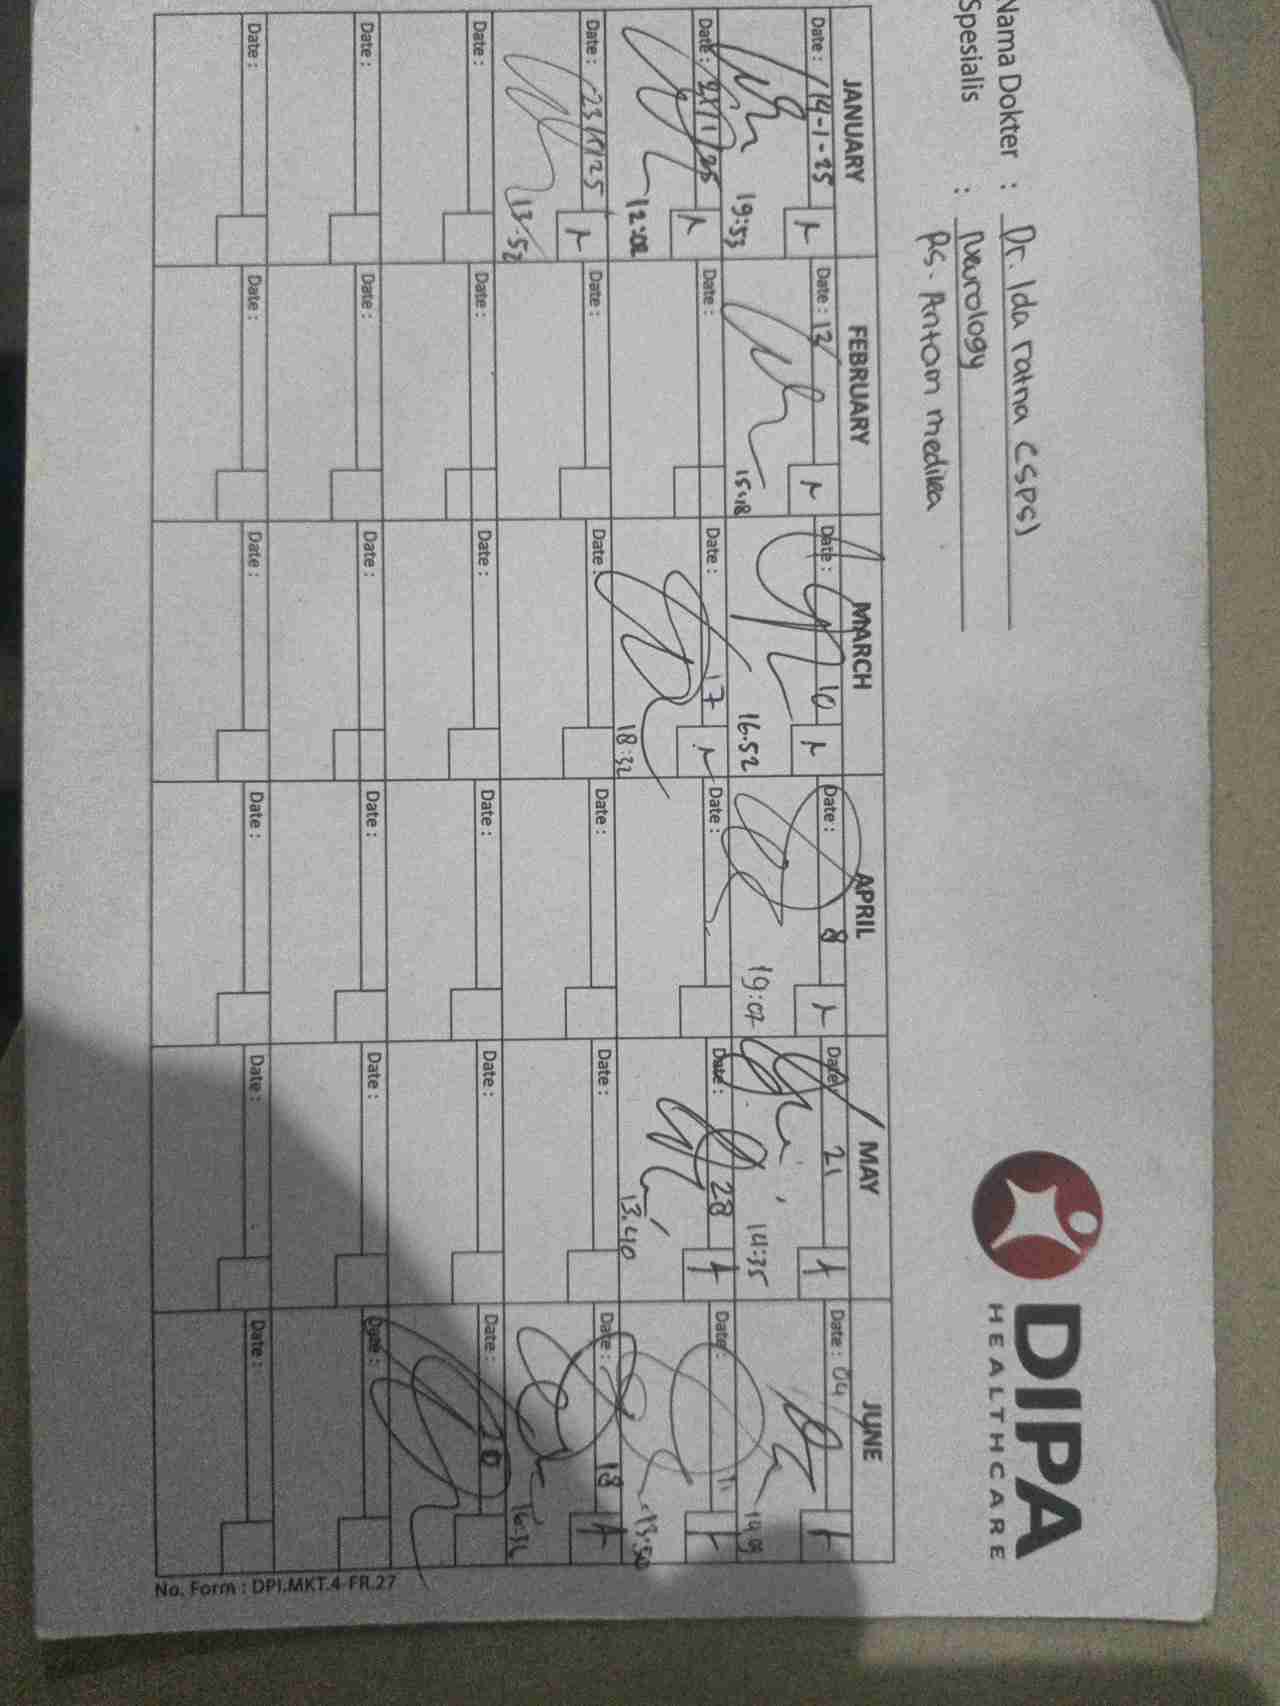 DIPA
HEALTHCARE
Nama Dokter : Dr. Ida ratna (SPS)
Spesialis : Neurology
RS. Antam medika
JANUARY FEBRUARY MARCH APRIL MAY JUNE
Date : 14-1-25 Date : 13 Date : 10 Date : 8 Date : 21 Date : 04
19:53 15:18 16.52 19:07 14:35
Date : Date : Date : 17 Date : Date : 28 Date : 11
12:02 18:32 13.40 13:50
Date : 23/1/25 Date : Date : Date : Date : Date : 18
13.52
Date : Date : Date : Date : Date : Date :
Date : Date : Date : Date : Date : Date :
Date : Date : Date : Date : Date : Date :
No. Form : DPI.MKT.4-FR.27